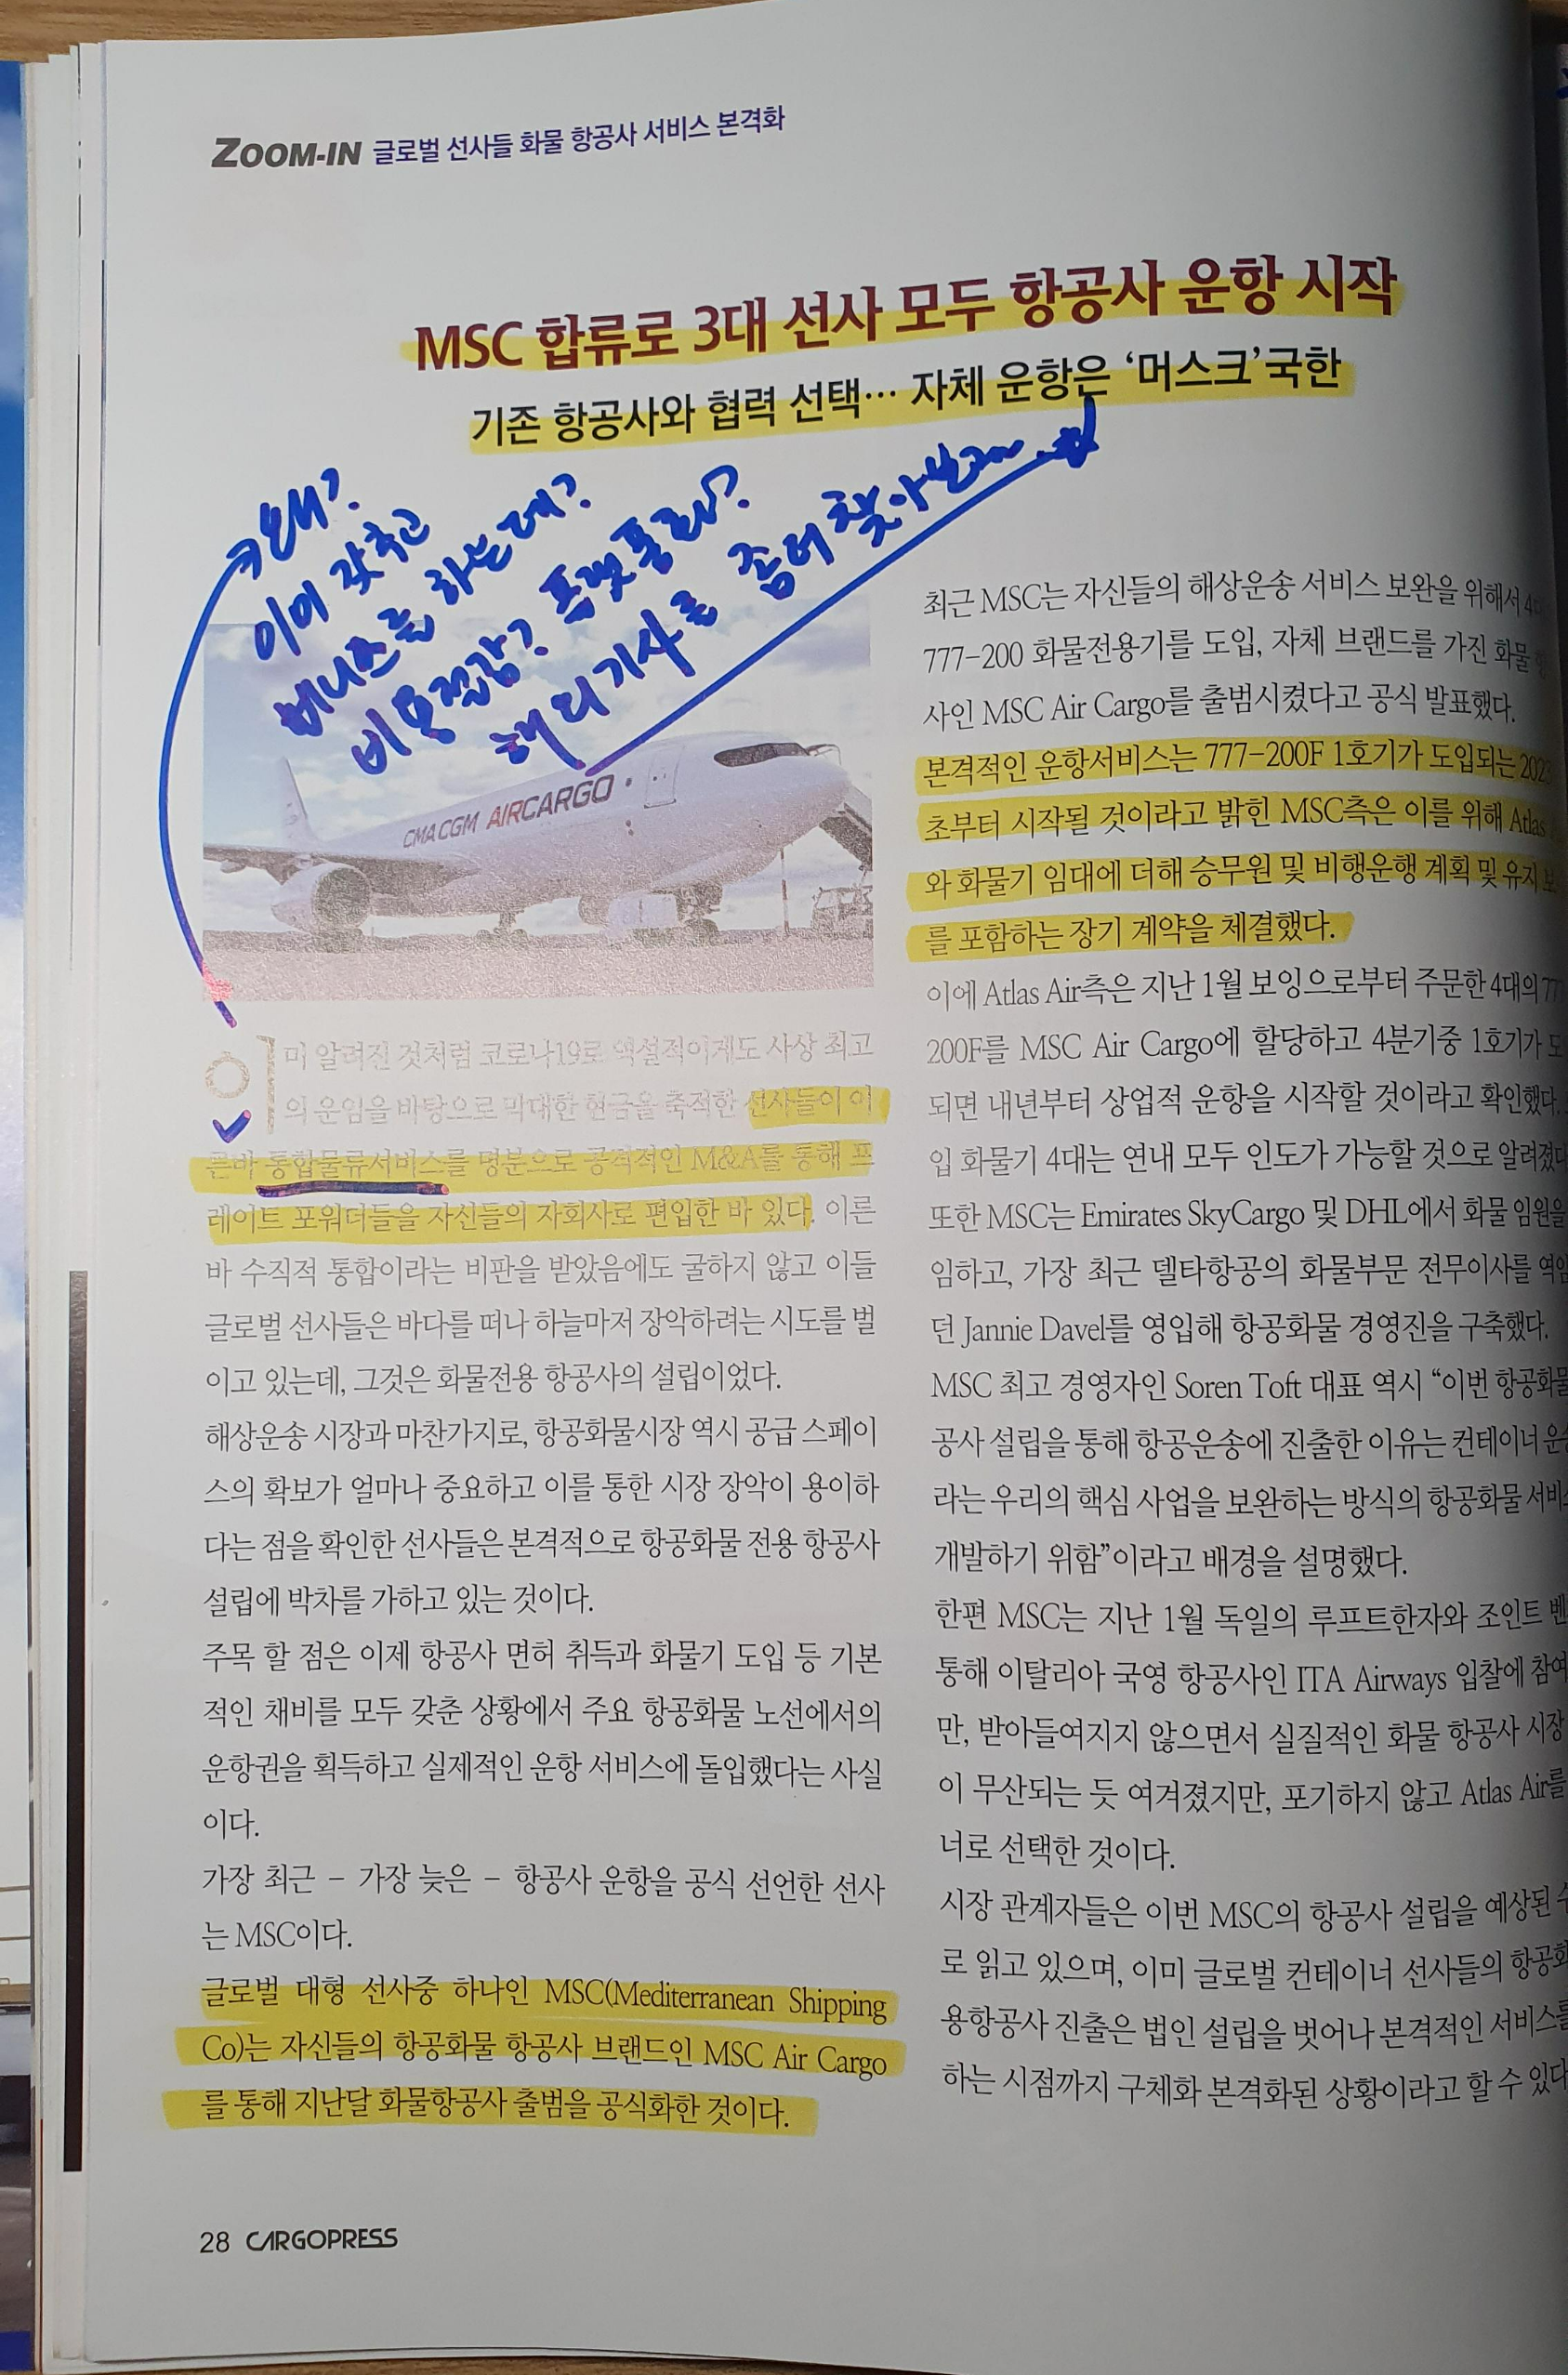 ZOOM-IN 글로벌 선사들 화물 항공사 서비스 본격화
MSC 합류로 3대 선사 모두 항공사 운항 시작
기존 항공사와 협력 선택… 자체 운항은 ‘머스크’국한
왜?
이미 갖추고
비니즈를 하는데?
비용절감? 플랫폼?
해외기사를 좀더 찾아보고
CMA CGM AIRCARGO
이미 알려진 것처럼 코로나19로 역설적이게도 사상 최고
의 운임을 바탕으로 막대한 현금을 축적한 선사들이 이
른바 통합물류서비스를 명분으로 공격적인 M&A를 통해 프
레이트 포워더들을 자신들의 자회사로 편입한 바 있다. 이른
바 수직적 통합이라는 비판을 받았음에도 굴하지 않고 이들
글로벌 선사들은 바다를 떠나 하늘마저 장악하려는 시도를 벌
이고 있는데, 그것은 화물전용 항공사의 설립이었다.
해상운송 시장과 마찬가지로, 항공화물시장 역시 공급 스페이
스의 확보가 얼마나 중요하고 이를 통한 시장 장악이 용이하
다는 점을 확인한 선사들은 본격적으로 항공화물 전용 항공사
설립에 박차를 가하고 있는 것이다.
주목 할 점은 이제 항공사 면허 취득과 화물기 도입 등 기본
적인 채비를 모두 갖춘 상황에서 주요 항공화물 노선에서의
운항권을 획득하고 실제적인 운항 서비스에 돌입했다는 사실
이다.
가장 최근 - 가장 늦은 - 항공사 운항을 공식 선언한 선사
는 MSC이다.
글로벌 대형 선사중 하나인 MSC(Mediterranean Shipping
Co)는 자신들의 항공화물 항공사 브랜드인 MSC Air Cargo
를 통해 지난달 화물항공사 출범을 공식화한 것이다.
최근 MSC는 자신들의 해상운송 서비스 보완을 위해서
777-200 화물전용기를 도입, 자체 브랜드를 가진 화물
사인 MSC Air Cargo를 출범시켰다고 공식 발표했다.
본격적인 운항서비스는 777-200F 1호기가 도입되는
초부터 시작될 것이라고 밝힌 MSC측은 이를 위해 Atlas
와 화물기 임대에 더해 승무원 및 비행운행 계획 및 유지
를 포함하는 장기 계약을 체결했다.
이에 Atlas Air측은 지난 1월 보잉으로부터 주문한 4대의
200F를 MSC Air Cargo에 할당하고 4분기중 1호기가
되면 내년부터 상업적 운항을 시작할 것이라고 확인했다.
입 화물기 4대는 연내 모두 인도가 가능할 것으로 알려졌다
또한 MSC는 Emirates SkyCargo 및 DHL에서 화물 임원을
임하고, 가장 최근 델타항공의 화물부문 전무이사를 역임
던 Jannie Davel를 영입해 항공화물 경영진을 구축했다.
MSC 최고 경영자인 Soren Toft 대표 역시 “이번 항공화물
공사 설립을 통해 항공운송에 진출한 이유는 컨테이너 운송
라는 우리의 핵심 사업을 보완하는 방식의 항공화물 서비스
개발하기 위함”이라고 배경을 설명했다.
한편 MSC는 지난 1월 독일의 루프트한자와 조인트
통해 이탈리아 국영 항공사인 ITA Airways 입찰에 참여
만, 받아들여지지 않으면서 실질적인 화물 항공사 시장
이 무산되는 듯 여겨졌지만, 포기하지 않고 Atlas Air를
너로 선택한 것이다.
시장 관계자들은 이번 MSC의 항공사 설립을 예상된
로 읽고 있으며, 이미 글로벌 컨테이너 선사들의 항공화
용항공사 진출은 법인 설립을 벗어나 본격적인 서비스를
하는 시점까지 구체화 본격화된 상황이라고 할 수 있다
28 CARGOPRESS